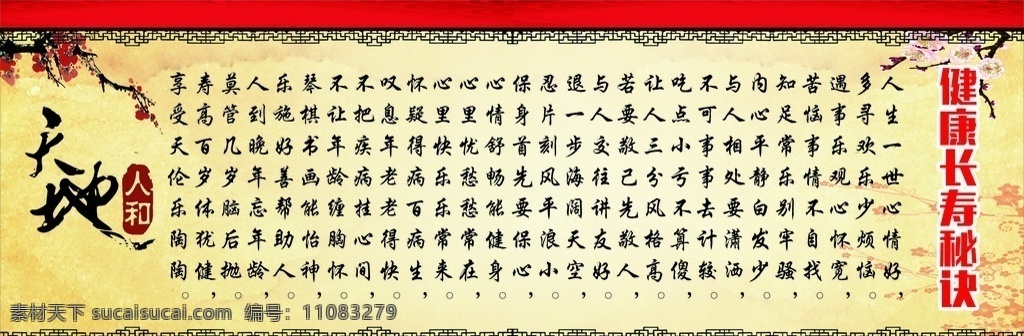 健康长寿秘诀
人生一世心情好，
多寻欢乐少烦恼。
遇事乐观心怀宽，
苦恼事情不自找。
知足常乐别牢骚，
内心平静白发少。
与人相处要潇洒，
不可事事去计较。
吃点小亏不算傻，
让人三分风格高。
若要敬己先敬人，
与人交往讲友好。
退一步海阔天空，
忍片刻风平浪小。
保身首先要保心，
心情舒畅能健身。
心里忧愁愁常在，
心里快乐乐常来。
怀疑得病百病生，
叹息年老老得快。
不把疾病挂心间，
不让年龄缠胸怀。
琴棋书画能怡神，
乐施好善帮助人。
人到晚年忘年龄，
莫管几岁脑后抛。
寿高百岁体犹健，
享受天伦乐陶陶。
天地
人和
素材天下 sucaisucai.com 编号：11083279